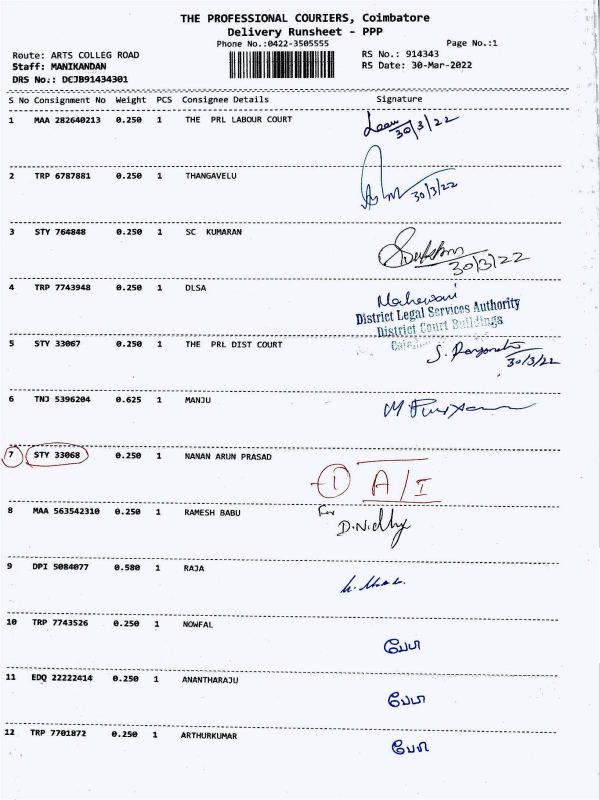 THE PROFESSIONAL COURIERS, Coimbatore
Delivery Runsheet - PPP
Phone No.:0422-3505555
Page No.:1
Route: ARTS COLLEG ROAD
RS No.: 914343
Staff: MANIKANDAN
RS Date: 30-Mar-2022
DRS No.: DCJB91434301
S No Consignment No Weight PCS Consignee Details Signature
1 MAA 282640213 0.250 1 THE PRL LABOUR COURT
30/3/22
2 TRP 6787881 0.250 1 THANGAVELU
30/3/22
3 STY 764848 0.250 1 SC KUMARAN
30/3/22
4 TRP 7743948 0.250 1 DLSA
District Legal Services Authority
District Court Buildings
5 STY 33067 0.250 1 THE PRL DIST COURT
30/3/22
6 TNJ 5396204 0.625 1 MANJU
7 STY 33068 0.250 1 NANAN ARUN PRASAD
1 A/I
8 MAA 563542310 0.250 1 RAMESH BABU
For
9 DPI 5084077 0.580 1 RAJA
10 TRP 7743526 0.250 1 NOWFAL
11 EDQ 22222414 0.250 1 ANANTHARAJU
12 TRP 7701872 0.250 1 ARTHURKUMAR